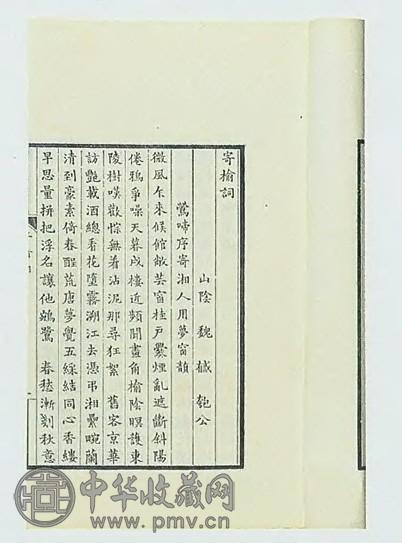 寄榆詞
山陰 魏 戫 匏公
鶯啼序寄湘人用夢窗韻
微風乍來候館敞芸窗桂戶爨煙亂遮斷斜陽
倦鴉爭噪天暮戍樓近頻聞畫角榆陰暝護東
陵樹嘆歡悰無着沾泥那尋狂絮 舊客京華
訪艷載酒總看花墮霧溯江去憑弔湘纍畹蘭
清到豪素倚春酲荒唐夢覺五綵結同心香縷
早思量拚把浮名讓他鷗鷺 春愁漸刻秋意
中华收藏网
www.pmv.cn